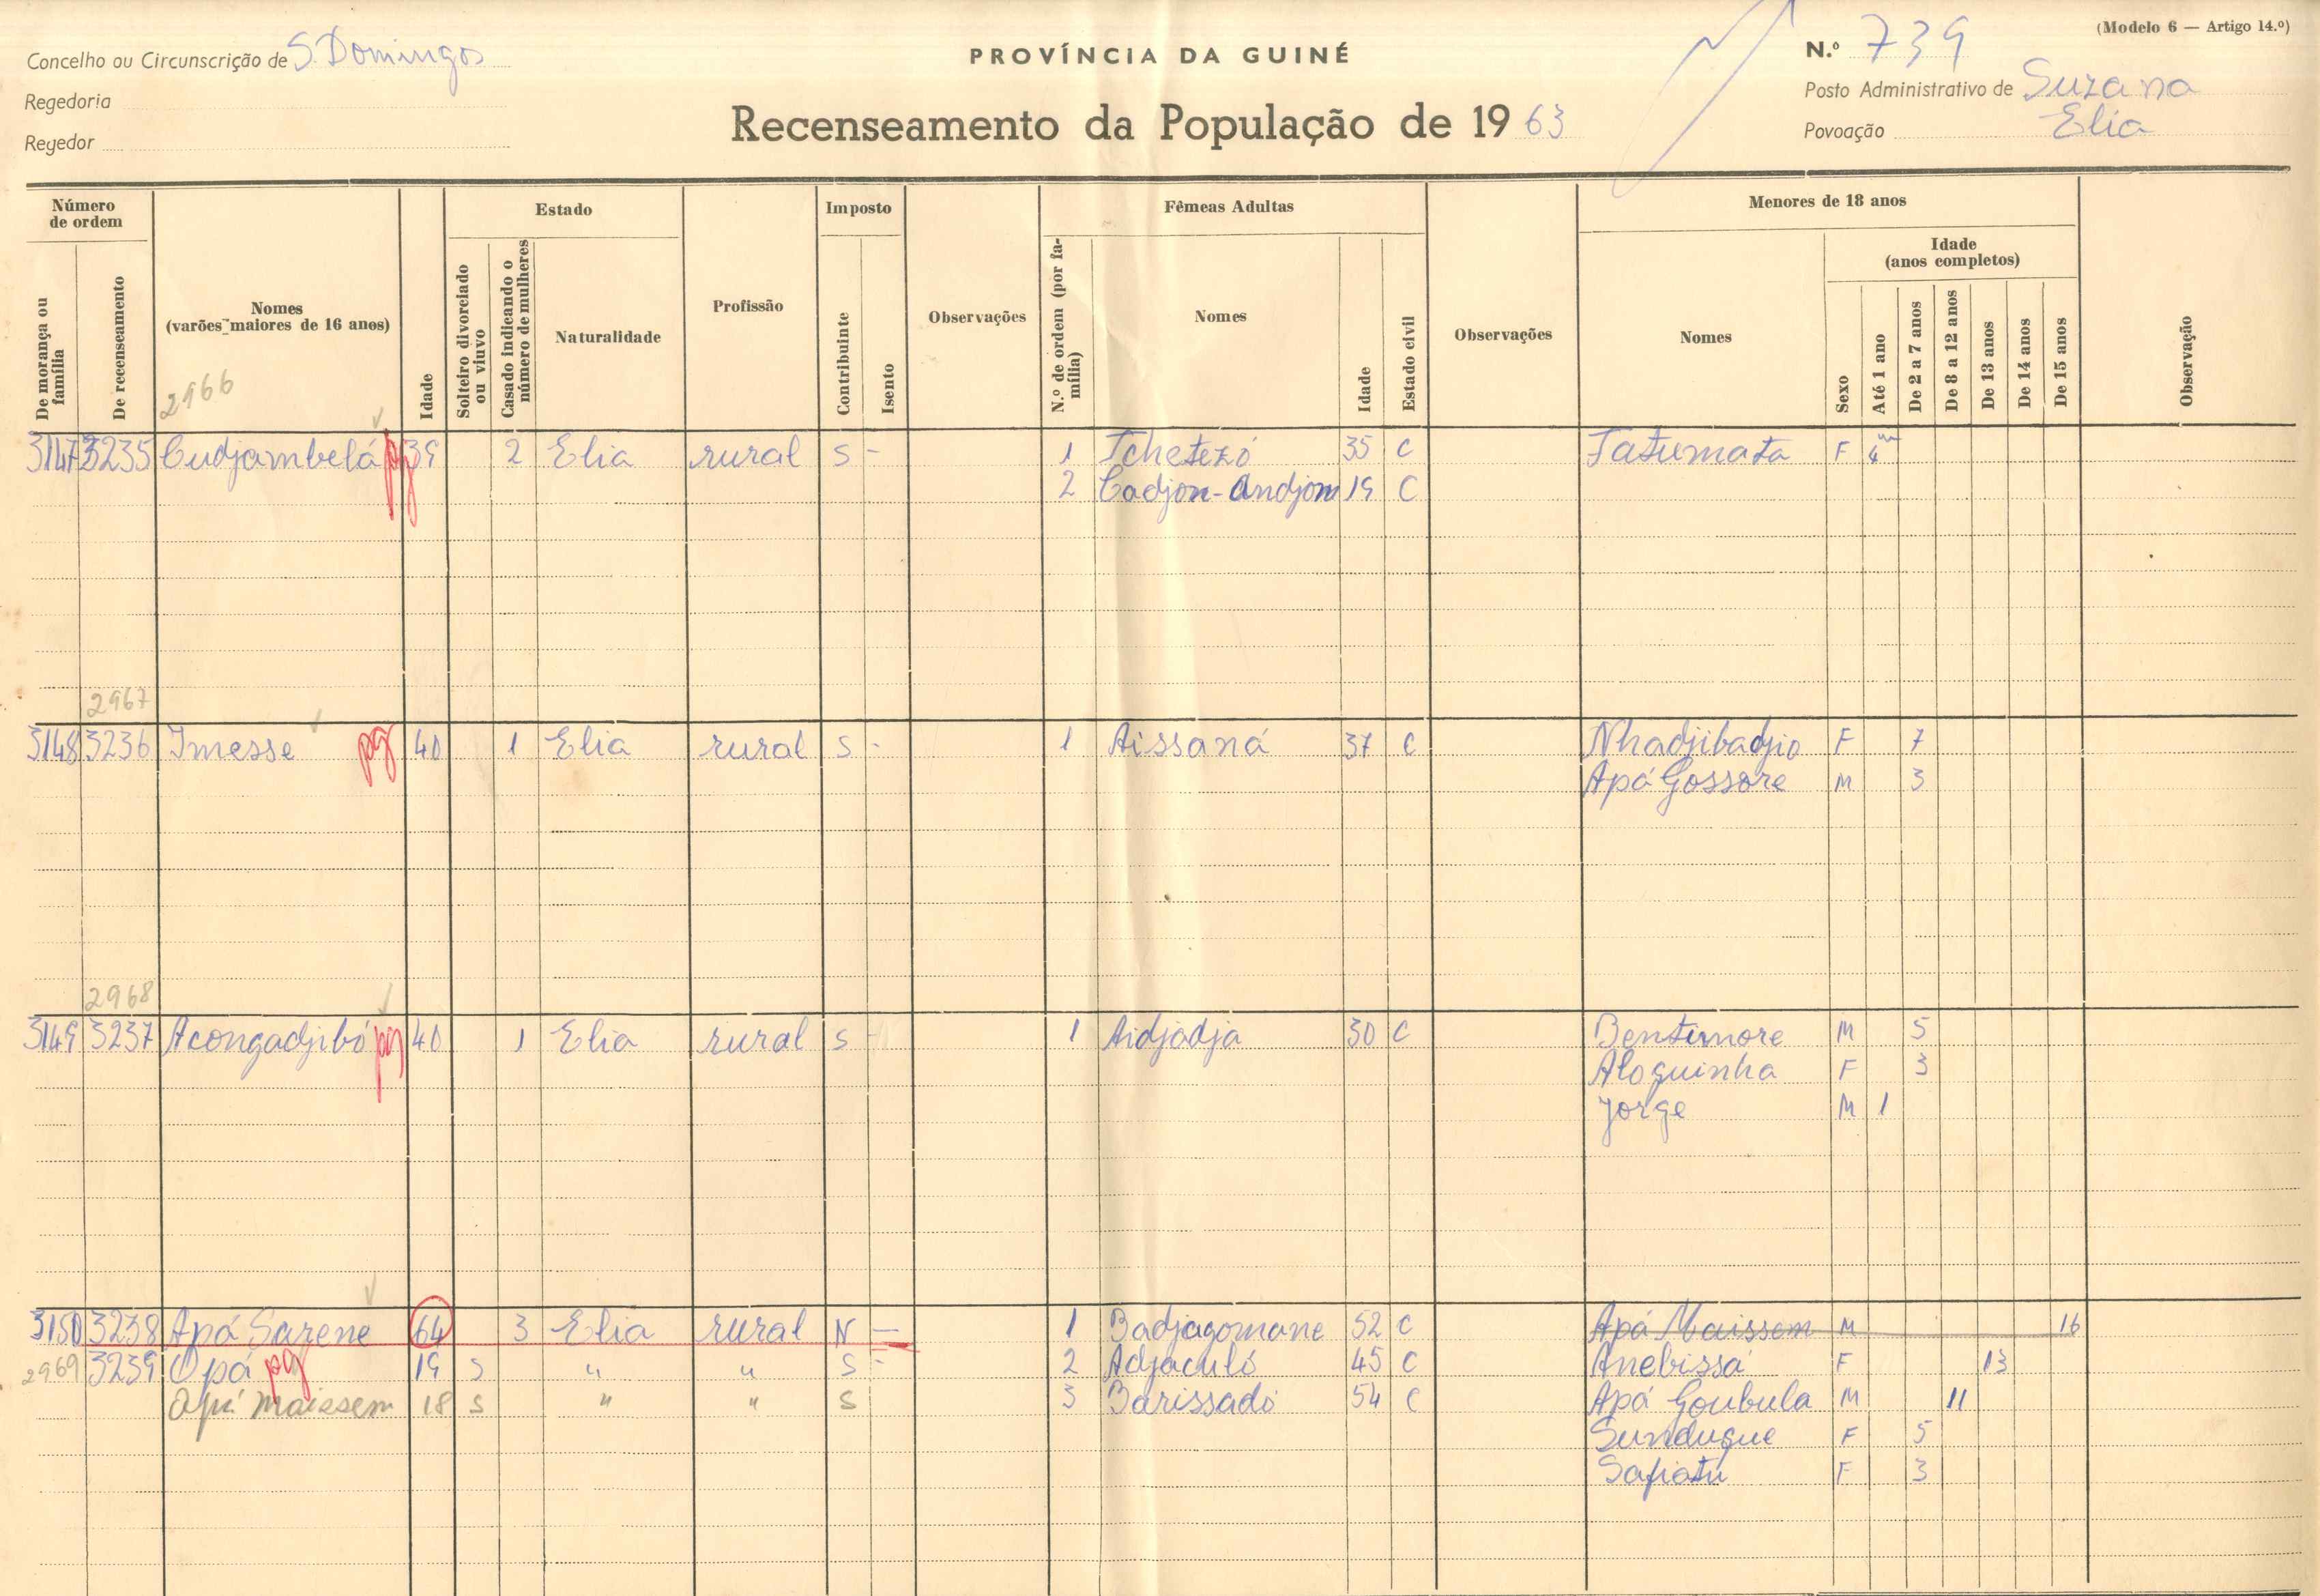 (Modelo 6 — Artigo 14.º)
Concelho ou Circunscrição de S. Domingos
PROVÍNCIA DA GUINÉ
N.º 739
Regedoria
Posto Administrativo de Suzana
Regedor
Recenseamento da População de 1963
Povoação Elia
Número de ordem
Estado
Imposto
Fêmeas Adultas
Menores de 18 anos
De morança ou família
De recenseamento
Nomes
(varões maiores de 16 anos)
Idade
Solteiro divorciado ou viuvo
Casado indicando o número de mulheres
Naturalidade
Profissão
Contribuinte
Isento
Observações
N.º de ordem (por família)
Nomes
Idade
Estado civil
Observações
Nomes
Sexo
Idade
(anos completos)
Até 1 ano
De 2 a 7 anos
De 8 a 12 anos
De 13 anos
De 14 anos
De 15 anos
Observação
2966
3147 3235 Cudjambelá pg 39 2 Elia rural S - 1 Tchetezó 35 C Fatumata F 4 m
2 Cadjon-Andjom 19 C
2967
3148 3236 Imesse pg 40 1 Elia rural S - 1 Aissaná 37 C Nhadjibadjio F 7
Apá Gossore M 3
2968
3149 3237 Acongadjibó pg 40 1 Elia rural S - 1 Aidjadja 30 C Bentimore M 5
Aloquinha F 3
Jorge M 1
3150 3238 Apá Sarene 64 3 Elia rural N — 1 Badjagomane 52 C Apá Maissem M 16
2969 3239 Opá pg 19 S " " S - 2 Adjaculó 45 C Anebissa F 13
Apá Maissem 18 S " " S 3 Barissado 54 C Apá Goubula M 11
Sunduque F 5
Safiatu F 3